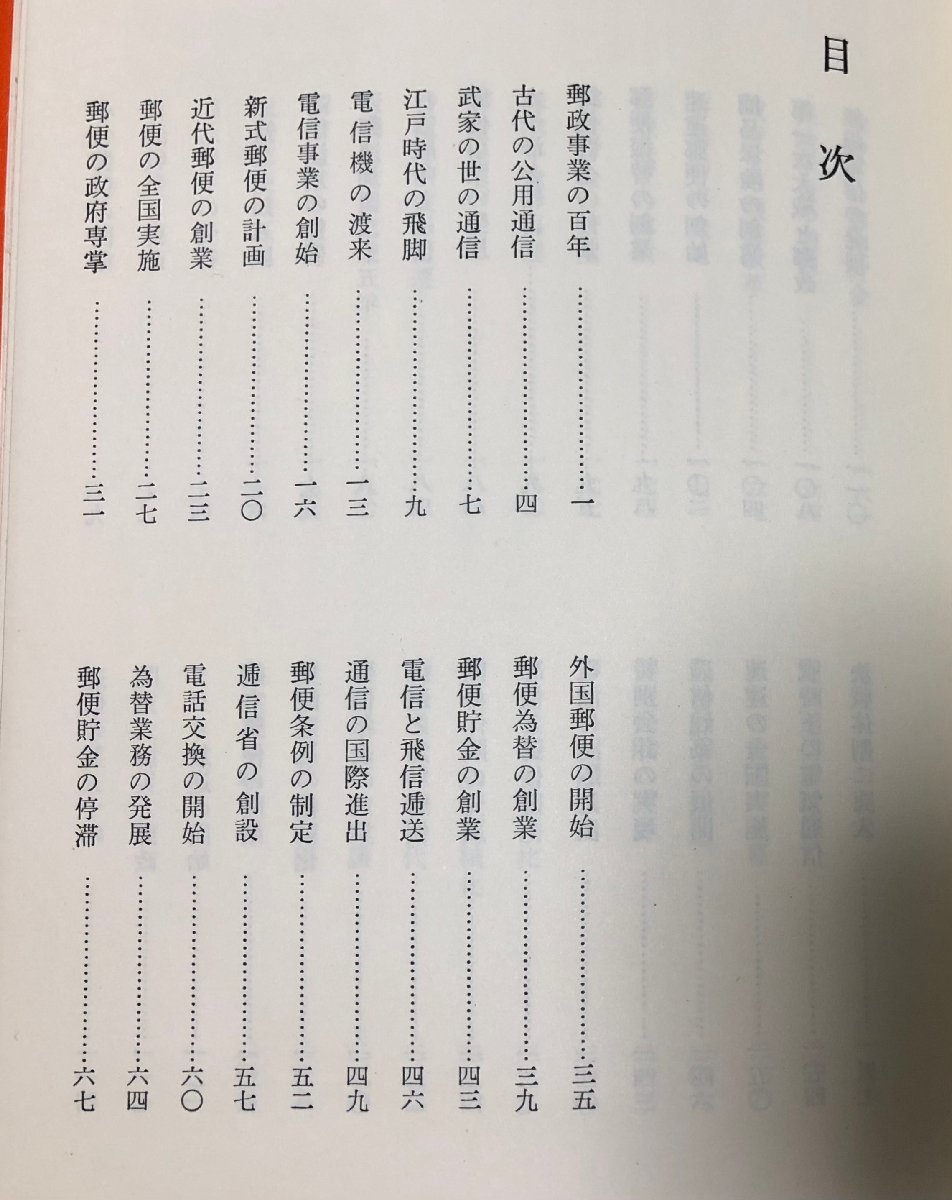 目次
郵政事業の百年……………………一
古代の公用通信……………………四
武家の世の通信……………………七
江戸時代の飛脚……………………九
電信機の渡来……………………一三
電信事業の創始……………………一六
新式郵便の計画……………………二〇
近代郵便の創業……………………二三
郵便の全国実施……………………二七
郵便の政府専掌……………………三一
外国郵便の開始……………………三五
郵便為替の創業……………………三九
郵便貯金の創業……………………四三
電信と飛信逓送……………………四六
通信の国際進出……………………四九
郵便条例の制定……………………五二
逓信省の創設……………………五七
電話交換の開始……………………六〇
為替業務の発展……………………六四
郵便貯金の停滞……………………六七